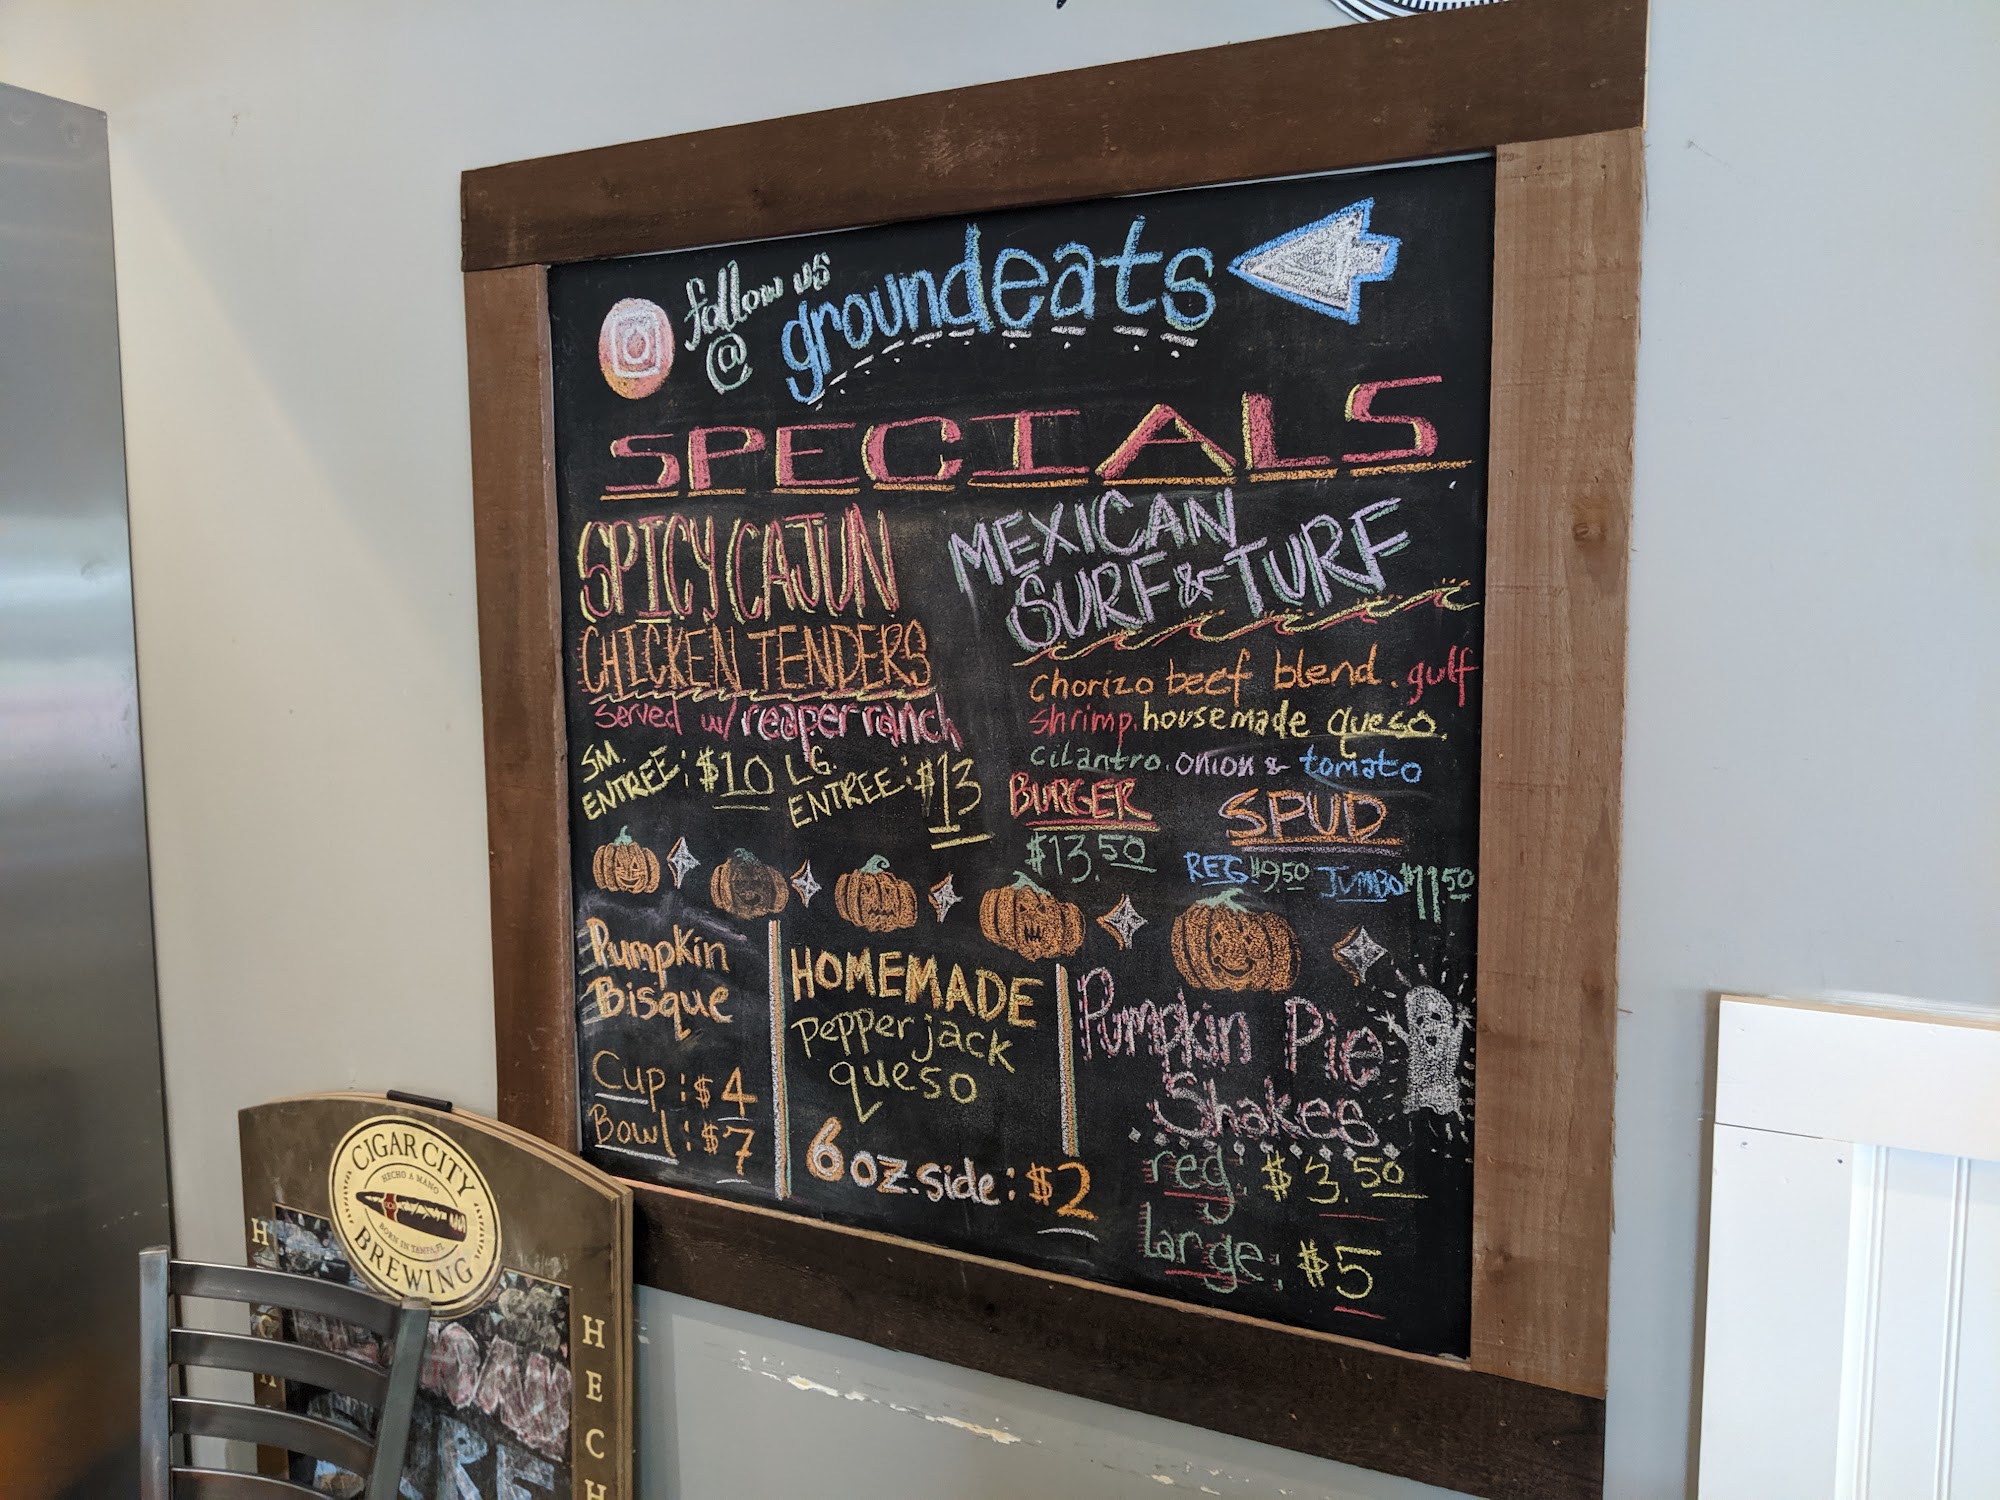 follow us
@ groundeats
SPECIALS
SPICY CAJUN
CHICKEN TENDERS
served w/ reaper ranch
SM. ENTREE: $10
LG. ENTREE: $13
MEXICAN
SURF & TURF
chorizo beef blend. gulf
shrimp. housemade queso.
cilantro. onion & tomato
BURGER
$13.50
SPUD
REG $9.50 JUMBO $11.50
Pumpkin
Bisque
Cup: $4
Bowl: $7
HOMEMADE
pepperjack
queso
6 oz. side: $2
Pumpkin Pie
Shakes
reg: $3.50
large: $5
CIGAR CITY
HECHO A MANO
BORN IN TAMPA, FL
BREWING
HECH